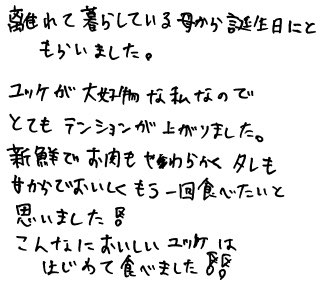 離れて暮らしている母から誕生日にと
もらいました。
ユッケが大好物な私なので
とてもテンションが上がりました。
新鮮でお肉もやわらかくタレも
甘からでおいしくもう一回食べたいと
思いました!!
こんなにおいしいユッケは
はじめて食べました!!